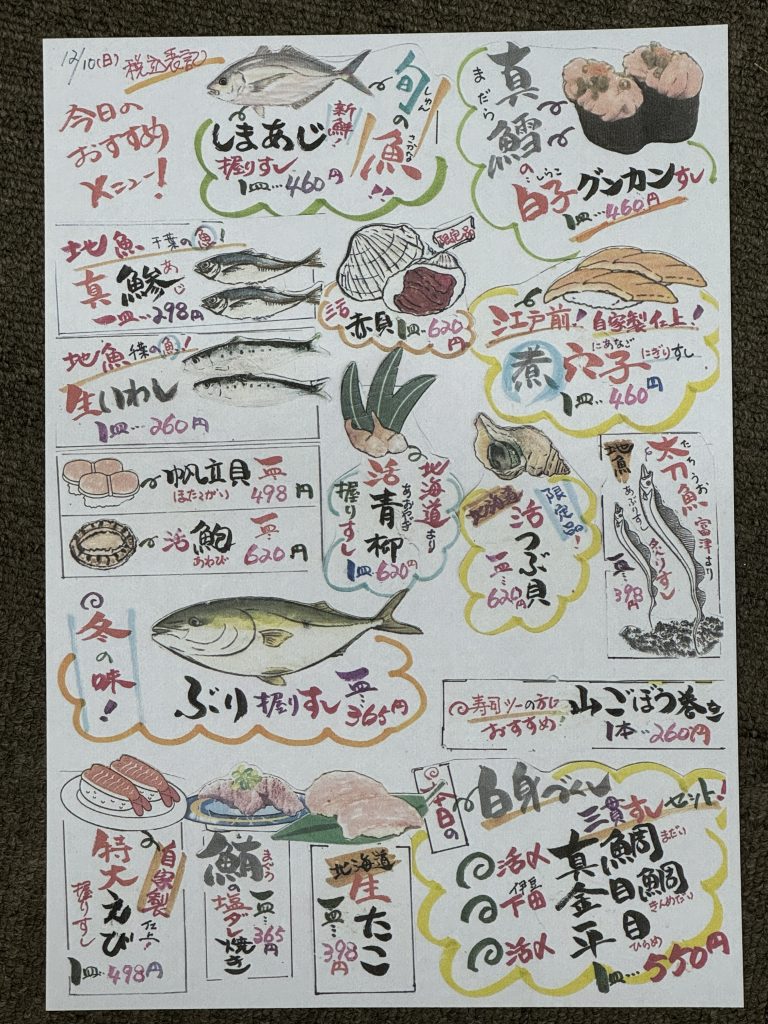 12/10(日)
税込表記
今日の
おすすめ
メニュー!
旬の魚!!
しゅん
さかな
新鮮!
しまあじ
握りすし
1皿…460円
真鱈の
まだら
しらこ
白子グンカンすし
1皿…460円
地魚 千葉の魚!
真鯵
あじ
一皿…298円
限定品
活
赤貝 1皿…620円
江戸前! 自家製仕上!
煮穴子 にぎりすし
にあなご
1皿…460円
地魚 千葉の魚!
生いわし
1皿…260円
帆立貝 一皿…
ほたてがい 498円
活 鮑 一皿…
あわび 620円
北海道より
活青柳
あおやぎ
握りすし
1皿…620円
限定品!
北海道
活つぶ貝
一皿…620円
地魚
太刀魚
たちうお
富津より
炙りすし
あぶりすし
一皿…398円
冬の味!
ぶり 握りすし 一皿…365円
寿司ツーの方に
おすすめ!
山ごぼう巻き
1本…260円
自家製
仕上
特大えび
握りすし
1皿…498円
鮪の塩ダレ焼き
まぐろ
一皿…365円
北海道
生たこ
一皿…398円
今日の
白身づくし
三貫すしセット!
活〆 真鯛
まだい
伊豆
下田 金目鯛
きんめだい
活〆 平目
ひらめ
1皿…550円